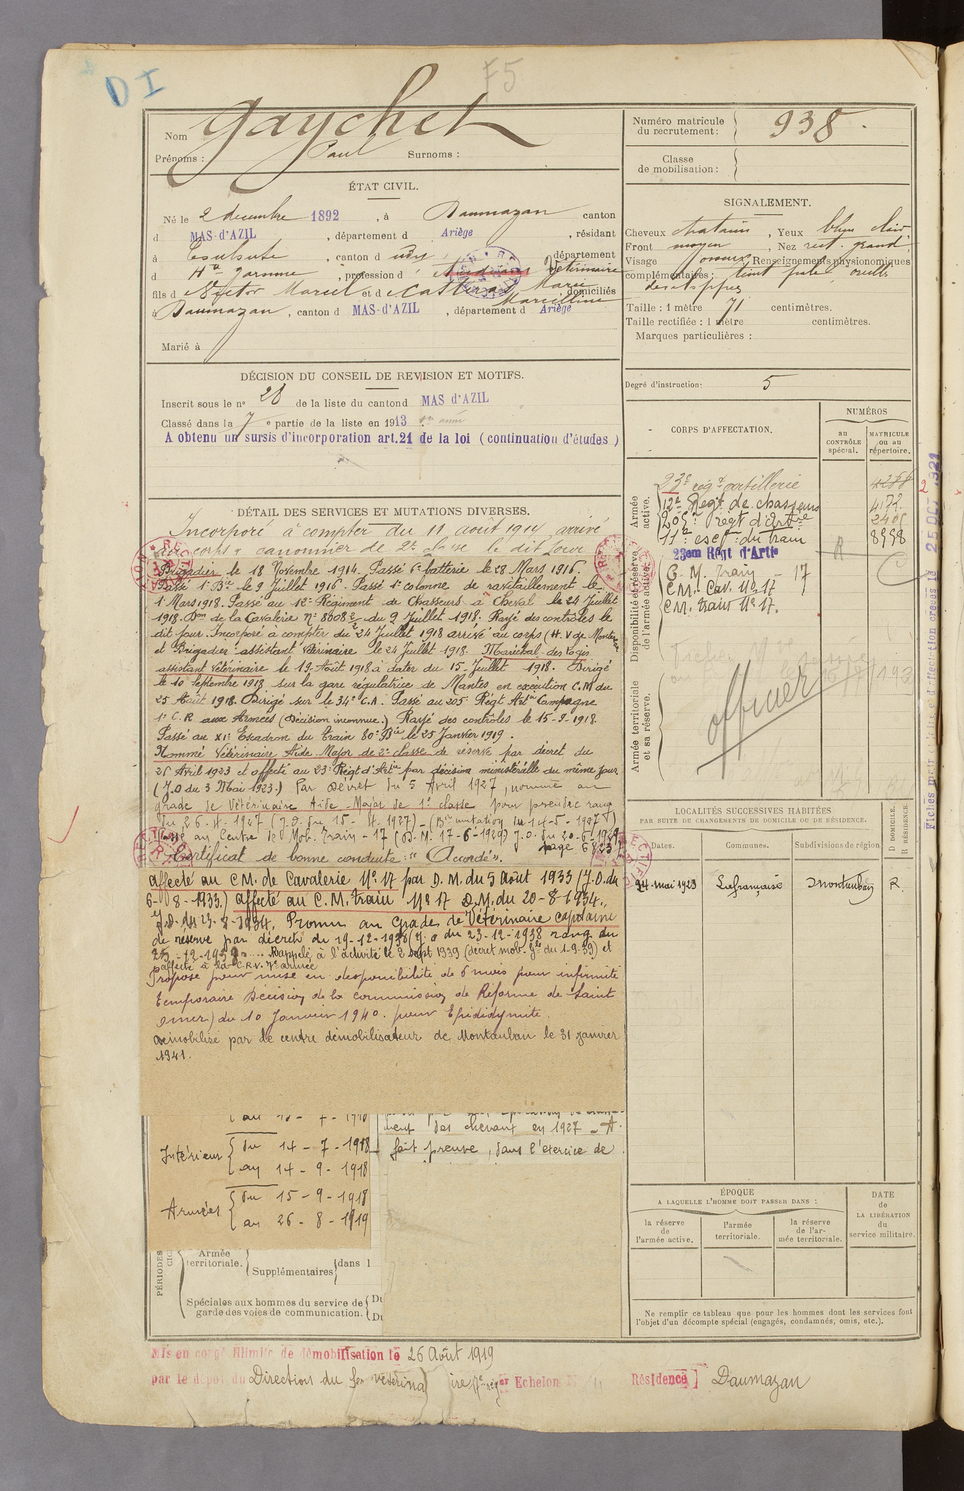 D I
F5
Nom Gaychet
Prénoms : Paul Surnoms :
ÉTAT CIVIL.
Né le 2 décembre 1892, à Daumazan canton
d MAS-D'AZIL, département d Ariège, résidant
à Toulouse, canton d , département
d Hte Garonne, profession d' Vétérinaire
fils d Victor Marcel et d Marie Marcelline, domiciliés
à Daumazan, canton d MAS-D'AZIL, département d Ariège
Marié à
DÉCISION DU CONSEIL DE REVISION ET MOTIFS.
Inscrit sous le n° 28 de la liste du canton d MAS d'AZIL
Classé dans la 7 e partie de la liste en 1913
A obtenu un sursis d'incorporation art.21 de la loi (continuation d'études)
DÉTAIL DES SERVICES ET MUTATIONS DIVERSES.
Incorporé à compter du 11 août 1914 arrivé
au corps & canonnier de 2e classe le dit jour
Brigadier le 18 Novembre 1914. Passé 6e batterie le 28 Mars 1916.
Passé 1e Bie le 9 Juillet 1916. Passé 1e colonne de ravitaillement le
1er Mars 1918. Passé au 12e Régiment de Chasseurs à Cheval le 24 Juillet
1918. Don de la Cavalerie n° 8608 du 9 Juillet 1918. Rayé des contrôles le
dit jour. Incorporé à compter du 24 Juillet 1918 arrivé au corps (H. V. de
et Brigadier assistant Vétérinaire le 24 Juillet 1918. Maréchal des Logis
assistant Vétérinaire le 19 Août 1918 à dater du 15 Juillet 1918. Dirigé
le 10 Septembre 1918 sur la gare régulatrice de Mantes en exécution C.M du
25 Août 1918. Dirigé sur le 34e C.A. Passé au 205e Régt Artie Campagne
1e C.R aux Armées (Décision inconnue.) Rayé des contrôles le 15-9-1918.
Passé au XIe Escadron du train 80e Bie le 25 Janvier 1919.
Nommé Vétérinaire Aide Major de 2e classe de réserve par décret du
25 Avril 1923 et affecté au 23e Régt d'Artie par décision ministérielle du même jour
(J.O du 3 Mai 1923.) Par décret du 5 Avril 1927, nommé au
grade de Vétérinaire Aide-Major de 1e classe pour prendre rang
du 26-4-1927 (J.O. du 15-4-1927) - (Bie mutation du 14-5-1927)
Passé au Centre de Mob. Train-17 (D.M. 17-6-1929) J.O. du 20-6-1929
page 6823
Certificat de bonne conduite : " Accordé".
Affecté au C.M. de Cavalerie N° 17 par D.M. du 5 Août 1933 (J.O. du
6-8-1933.) affecté au C.M. train N° 17 D.M. du 20-8-1934.,
J.O. du 23-8-1934. Promu au grade de Vétérinaire capitaine
de réserve par décret du 19-12-1938 (J.O du 23-12-1938 rang du
25-12-1938. Rappelé à l'activité le 2 sept 1939 (décret mob. Gle du 1-9-39) et
affecté à la C.R.V. 7e armée
Proposé pour mise en disponibilité de 6 mois pour infirmité
temporaire Décision de la commission de Réforme de Saint
Omer) du 10 Janvier 1940. pour Epididymite.
Démobilisé par le centre démobilisateur de Montauban le 31 janvier
1941.
Intérieur { du 14-7-1918
au 14-9-1918
Armées { du 15-9-1918
au 26-8-1919
des chevaux en 1927 - A
fait preuve, dans l'exercice de
PÉRIODES
Armée territoriale. { Supplémentaires } dans l
Spéciales aux hommes du service de
garde des voies de communication. {
Mis en congé illimité de démobilisation le 26 Août 1919
par le dépôt du Direction du Echelon
Résidence ] Daumazan
Numéro matricule
du recrutement : 938.
Classe
de mobilisation :
SIGNALEMENT.
Cheveux chatains, Yeux bleu clair
Front moyen, Nez rect. grand
Visage Renseignements physionomiques
complémentaires : teint pale oreilles
Taille : 1 mètre 71 centimètres.
Taille rectifiée : 1 mètre centimètres.
Marques particulières :
Degré d'instruction : 5
CORPS D'AFFECTATION.
NUMÉROS
au CONTRÔLE spécial.
MATRICULE ou au répertoire.
Armée active.
23e régt artillerie
12e Régt de chasseurs 4172.
205e régt d'Artie 2405
11e escon du train 8958
Disponibilité et réserve de l'armée active.
23em Régt d'Artie R
C. M. Train - 17
C M. Cav. N° 17
C M. train N° 17.
Armée territoriale et sa réserve.
officier
LOCALITÉS SUCCESSIVES HABITÉES
PAR SUITE DE CHANGEMENTS DE DOMICILE OU DE RÉSIDENCE.
Dates.
Communes.
Subdivisions de région
D DOMICILE. R RÉSIDENCE.
24 mai 1923 Lafrançaise Montauban R.
ÉPOQUE
A LAQUELLE L'HOMME DOIT PASSER DANS :
la réserve de l'armée active.
l'armée territoriale.
la réserve de l'armée territoriale.
DATE de LA LIBÉRATION du service militaire.
Ne remplir ce tableau que pour les hommes dont les services font
l'objet d'un décompte spécial (engagés, condamnés, omis, etc.).